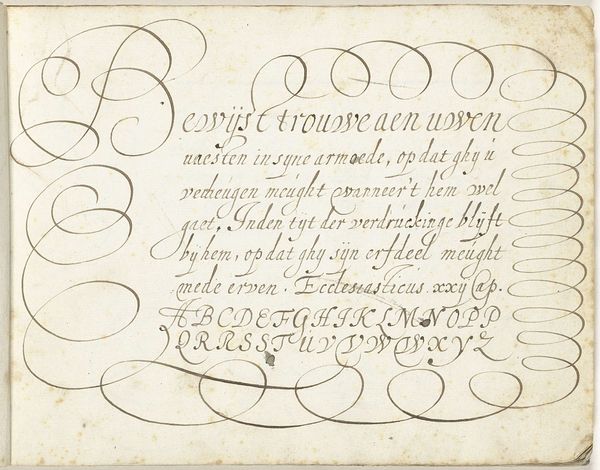 Bewijst trouwe aen uwen
naesten in syne armoede, op dat ghy u
verheugen meught wanneer't hem wel
gaet. In den tyt der verdruckinge blijft
by hem, op dat ghy syn erfdeel meught
mede erven. Ecclesiasticus. xxij Cap.
A B C D E F G H I K L M N O P P
Q R R S S T U V V W W X Y Z